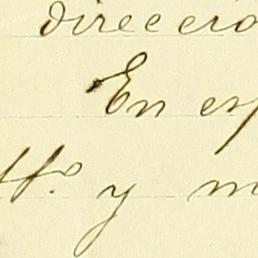 direccio
En esp
y m